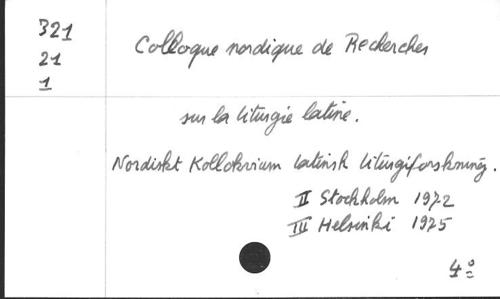 321
21
1
Colloque nordique de Recherches
sur la liturgie latine.
Nordiskt Kollokvium latinsk liturgiforskning.
II Stockholm 1972
III Helsinki 1975
4º